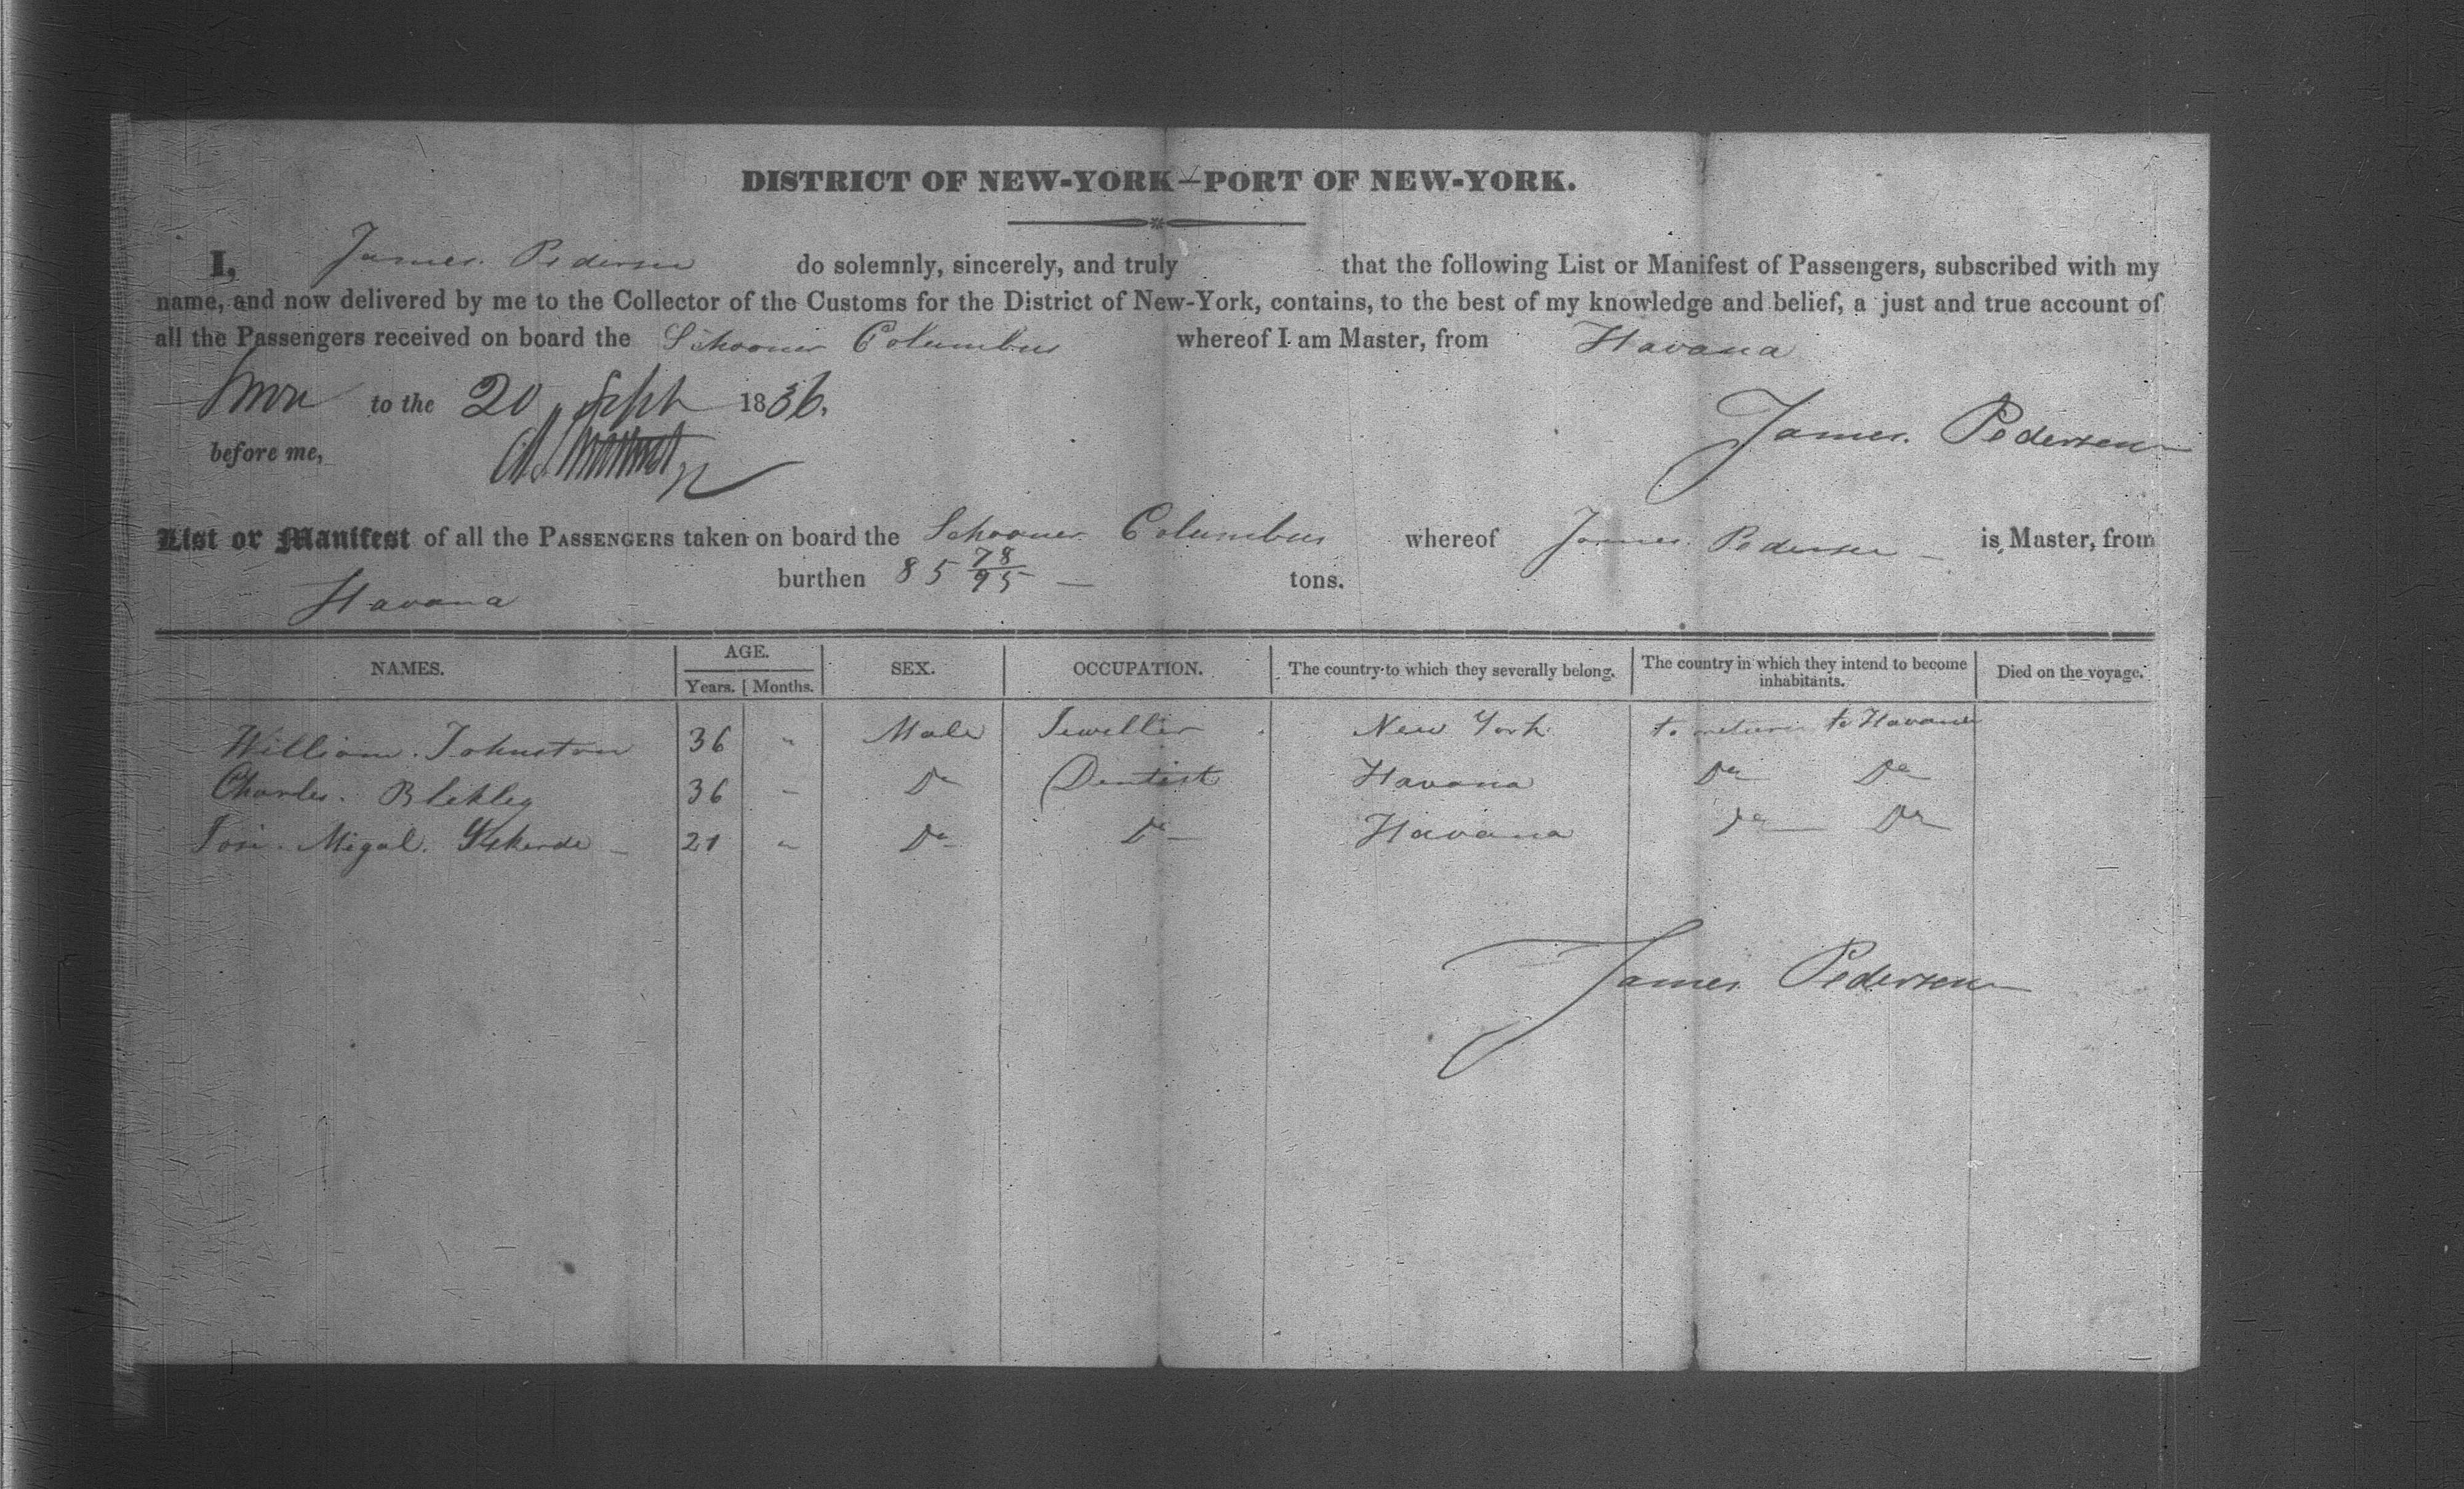 DISTRICT OF NEW-YORK—PORT OF NEW-YORK.
I, James Pedersen do solemnly, sincerely, and truly that the following List or Manifest of Passengers, subscribed with my
name, and now delivered by me to the Collector of the Customs for the District of New-York, contains, to the best of my knowledge and belief, a just and true account of
all the Passengers received on board the Schooner Columbus whereof I am Master, from Havana
to the 20 Sept 1836.
James Pedersen
before me,
List or Manifest of all the PASSENGERS taken on board the Schooner Columbus whereof James Pedersen is Master, from
Havana burthen 85 78/95 tons.
NAMES. AGE. SEX. OCCUPATION. The country to which they severally belong. The country in which they intend to become inhabitants. Died on the voyage.
Years. Months.
William Johnston 36 " Male Jeweller New York to return to Havana
Charles Blekley 36 " Do Dentist Havana Do Do
Migal 21 " Do Do Havana Do Do
James Pedersen